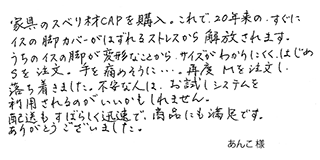 家具のスベリ材CAPを購入。これで、20年来の、すぐに
イスの脚カバーがはずれるストレスから解放されます。
うちのイスの脚が変形なことから、サイズがわかりにくく、はじめ
Sを注文。手を痛めそうに…。再度Mを注文し、
落ち着きました。不安な人は、お試しシステムを
利用されるのがいいかもしれません。
配送もすばらしく迅速で、商品にも満足です。
ありがとうございました。
あんこ様